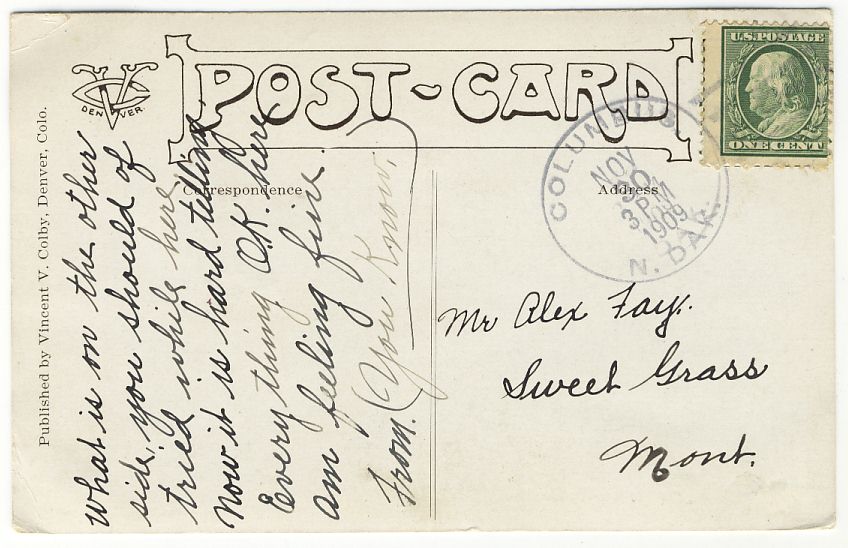 POST-CARD
U.S. POSTAGE
ONE CENT
COLUMBUS,
NOV
30
3 PM
1909
N. DAK.
VC
DENVER.
Published by Vincent V. Colby, Denver, Colo.
Correspondence
Address
What is on the other
side, you should of
tried while here
Now it is hard telling
Everything O.K. here
am feeling fine
From. (You Know.)
Mr Alex Fay.
Sweet Grass
Mont.